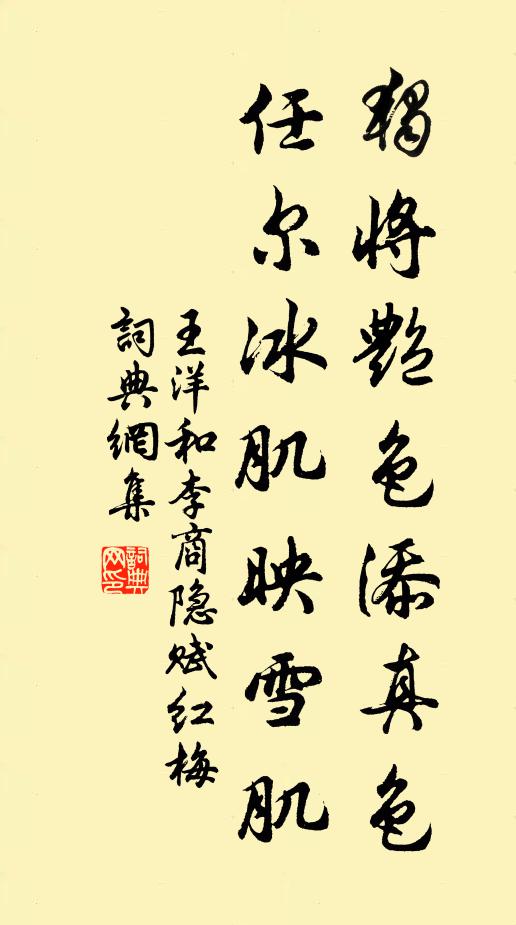 獨將艷色添真色
任尔冰肌映雪肌
王洋和李商隐赋红梅
詞典網集
詞典网印